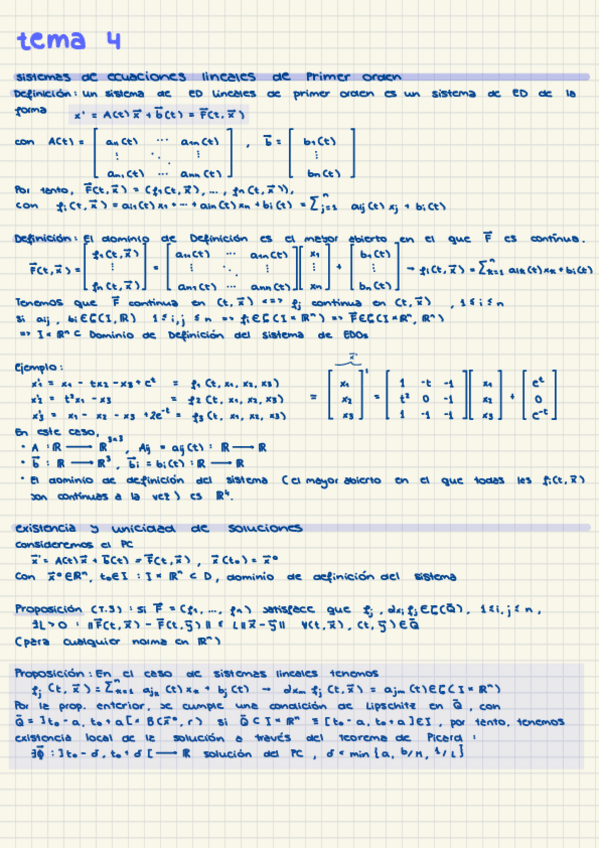 tema 4
sistemas de ecuaciones lineales de Primer orden
Definición: un sistema de ED lineales de primer orden es un sistema de ED de la
forma x' = A(t)x⃗ + b⃗(t) = F⃗(t, x⃗)
con A(t) = [ a₁₁(t) ... a₁ₙ(t) ; ⋮ ⋱ ⋮ ; aₙ₁(t) ... aₙₙ(t) ] , b⃗ = [ b₁(t) ; ⋮ ; bₙ(t) ]
Por tanto, F⃗(t, x⃗) = (f₁(t, x⃗), ..., fₙ(t, x⃗)),
con fᵢ(t, x⃗) = aᵢ₁(t)x₁ + ... + aᵢₙ(t)xₙ + bᵢ(t) = Σⱼ₌₁ⁿ aᵢⱼ(t)xⱼ + bᵢ(t)
Definición: El dominio de Definición es el mayor abierto en el que F⃗ es continua.
F⃗(t, x⃗) = [ f₁(t, x⃗) ; ⋮ ; fₙ(t, x⃗) ] = [ a₁₁(t) ... a₁ₙ(t) ; ⋮ ⋱ ⋮ ; aₙ₁(t) ... aₙₙ(t) ] [ x₁ ; ⋮ ; xₙ ] + [ b₁(t) ; ⋮ ; bₙ(t) ] → fᵢ(t, x⃗) = Σₖ₌₁ⁿ aᵢₖ(t)xₖ + bᵢ(t)
Tenemos que F⃗ continua en (t, x⃗) <=> fⱼ continua en (t, x⃗) , 1≤i≤n
Si aᵢⱼ, bᵢ∈C(I, ℝ) 1≤i,j≤n => fᵢ∈C(I×ℝⁿ) => F⃗∈C(I×ℝⁿ, ℝⁿ)
=> I×ℝⁿ ⊂ Dominio de Definición del sistema de EDOs
Ejemplo:
x₁' = x₁ - tx₂ - x₃ + eᵗ = f₁(t, x₁, x₂, x₃)
x₂' = t²x₁ - x₃ = f₂(t, x₁, x₂, x₃) = [ x₁ ; x₂ ; x₃ ]' = [ 1 -t -1 ; t² 0 -1 ; 1 -1 -1 ] [ x₁ ; x₂ ; x₃ ] + [ eᵗ ; 0 ; e⁻ᵗ ]
x₃' = x₁ - x₂ - x₃ + 2e⁻ᵗ = f₃(t, x₁, x₂, x₃)
En este caso,
• A : ℝ → ℝ³ˣ³, Aᵢⱼ = aᵢⱼ(t) : ℝ → ℝ
• b⃗ : ℝ → ℝ³, b⃗ᵢ = bᵢ(t) : ℝ → ℝ
• El dominio de definición del sistema (el mayor abierto en el que todas las fᵢ(t, x⃗)
son continuas a la vez) es ℝ⁴.
existencia y unicidad de soluciones
Consideremos el PC
x⃗' = A(t)x⃗ + b⃗(t) = F⃗(t, x⃗) , x⃗(t₀) = x⃗⁰
Con x⃗⁰∈ℝⁿ, t₀∈I : I×ℝⁿ ⊂ D, dominio de definición del sistema
Proposición (T.3) : si F⃗ = (f₁, ..., fₙ) satisface que fⱼ, ∂xᵢfⱼ∈C(Q̄), 1≤i,j≤n,
∃L>0 : ||F⃗(t, x⃗) - F⃗(t, y⃗)|| ≤ L||x⃗ - y⃗|| ∀(t, x⃗), (t, y⃗)∈Q̄
(para cualquier norma en ℝⁿ)
Proposición: En el caso de sistemas lineales tenemos
fⱼ(t, x⃗) = Σₖ₌₁ⁿ aⱼₖ(t)xₖ + bⱼ(t) → ∂xₘfⱼ(t, x⃗) = aⱼₘ(t)∈C(I×ℝⁿ)
Por la prop. anterior, se cumple una condición de Lipschitz en Q̄, con
Q̄ = ]t₀-a, t₀+a[ × B(x⃗⁰, r) si Q̄⊂I×ℝⁿ ≡ [t₀-a, t₀+a]∈I, por tanto, tenemos
existencia local de la solución a través del Teorema de Picard :
∃φ⃗ : ]t₀-δ, t₀+δ[ → ℝ solución del PC, δ < min{a, b/M, 1/L}